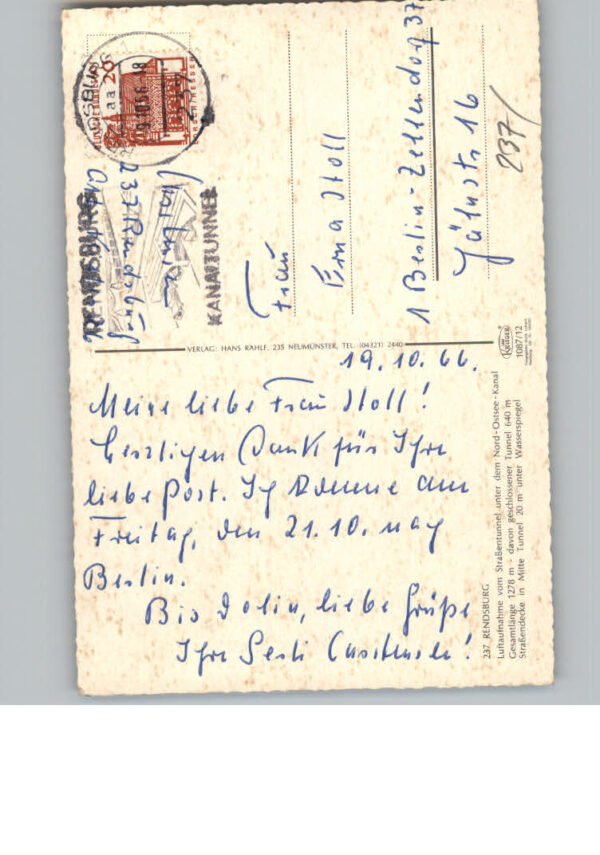 19.10.66.
Meine liebe Frau Stoll!
Herzlichen Dank für Ihre
liebe Post. Ich komme am
Freitag, den 21.10. nach
Berlin.
Bis dahin, liebe Grüße
Ihre
Frau
Erna Stoll
1 Berlin-Zehlendorf 37
16
237/
237 Rendsburg
RENDSBURG
KANALTUNNEL
20
VERLAG: HANS RAHLF, 235 NEUMÜNSTER, TEL. (04321) 2440
1087/12
237. RENDSBURG
Luftaufnahme vom Straßentunnel unter dem Nord-Ostsee-Kanal
Gesamtlänge 1278 m - davon geschlossener Tunnel 640 m
Straßendecke in Mitte Tunnel 20 m unter Wasserspiegel